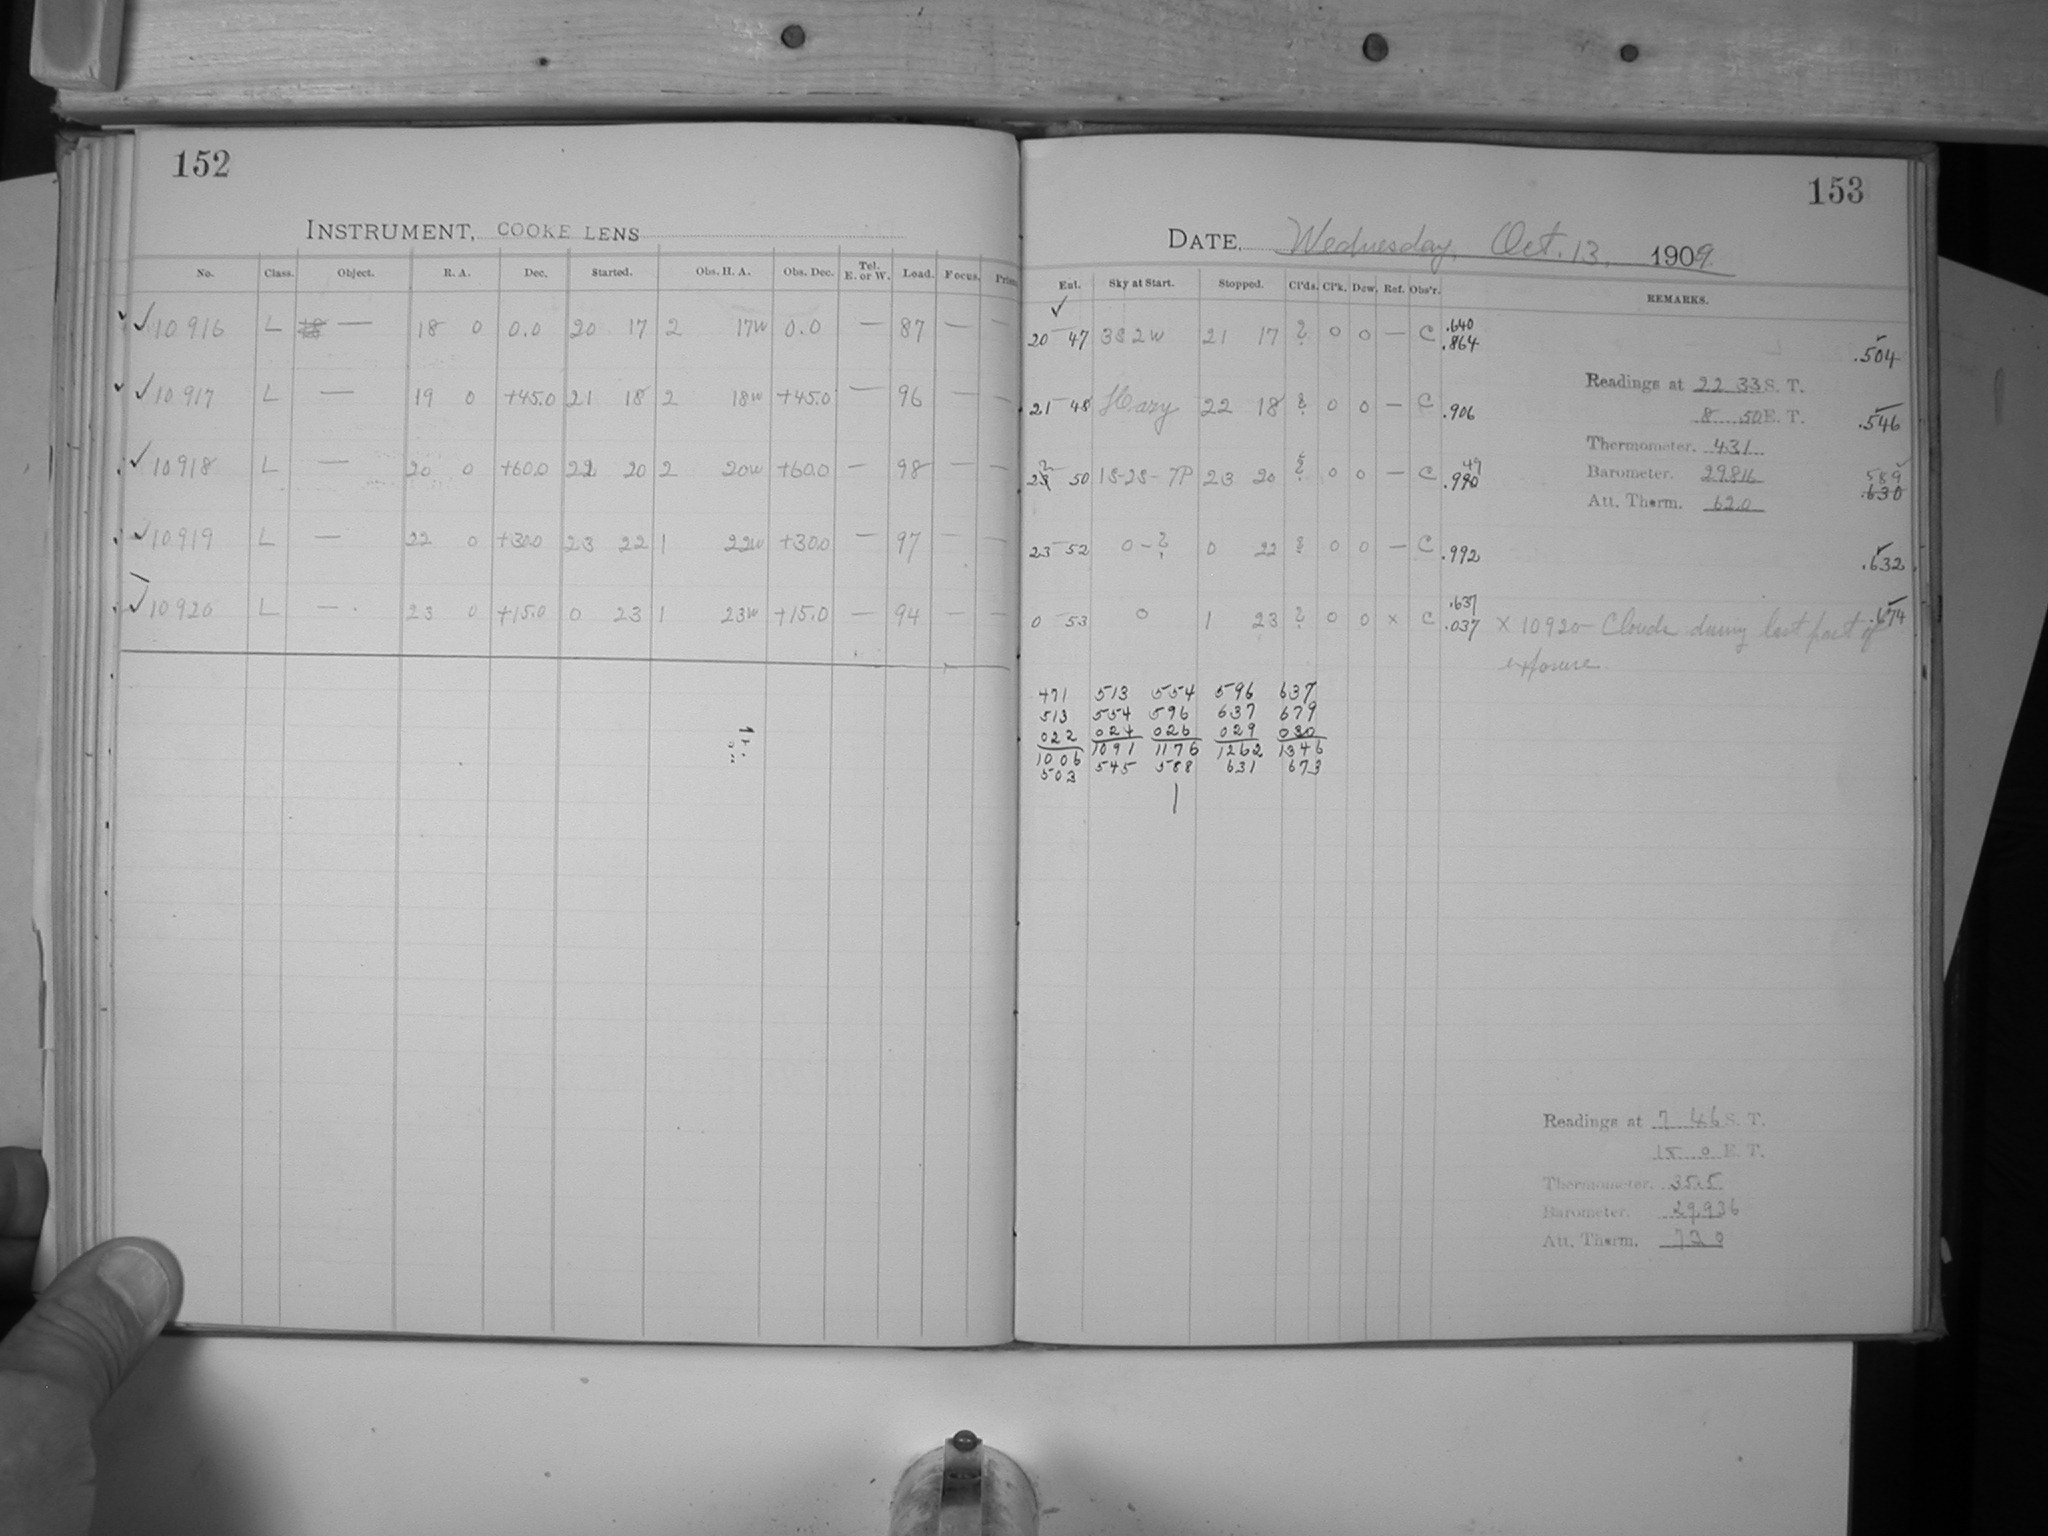 152
INSTRUMENT, COOKE LENS
No. Class. Object. R. A. Dec. Started. Obs. H. A. Obs. Dec. Tel. E. or W. Lead. Focus. Prism
✓10916 L — 18 0 0.0 20 17 2 17w 0.0 — 87 — —
✓10917 L — 19 0 +45.0 21 18 2 18w +45.0 — 96 — —
✓10918 L — 20 0 +60.0 22 20 2 20w +60.0 — 98 — —
✓10919 L — 22 0 +30.0 23 22 1 22w +30.0 — 97 — —
✓10920 L — 23 0 +15.0 0 23 1 23w +15.0 — 94 — —
153
DATE, Wednesday, Oct. 13, 1909
Ent. Sky at Start. Stopped. Cl'ds. Cl'k. Dew. Ref. Obs'r. REMARKS.
20 47 3S 2W 21 17 ? 0 0 — C .640 .864 .504
Readings at 22 33 S. T.
8 50 E. T.
21 48 Hazy 22 18 ? 0 0 — C .906 .546
Thermometer. 43.1
Barometer. 29.816
Att. Therm. 62.0
50 1S-2S-7P 23 20 ? 0 0 — C .990 49 589 .630
23 52 0-? 0 22 ? 0 0 — C .992 .632
0 53 0 1 23 ? 0 0 x C .637 .037 .674
x 10920- Clouds during last part of
exposure.
471 513 554 596 637
513 554 596 637 679
022 024 026 029 030
1006 1091 1176 1262 1346
503 545 588 631 673
Readings at 7 46 S. T.
15 0 E. T.
Thermometer. 35.5
Barometer. 29.936
Att. Therm. 72.0